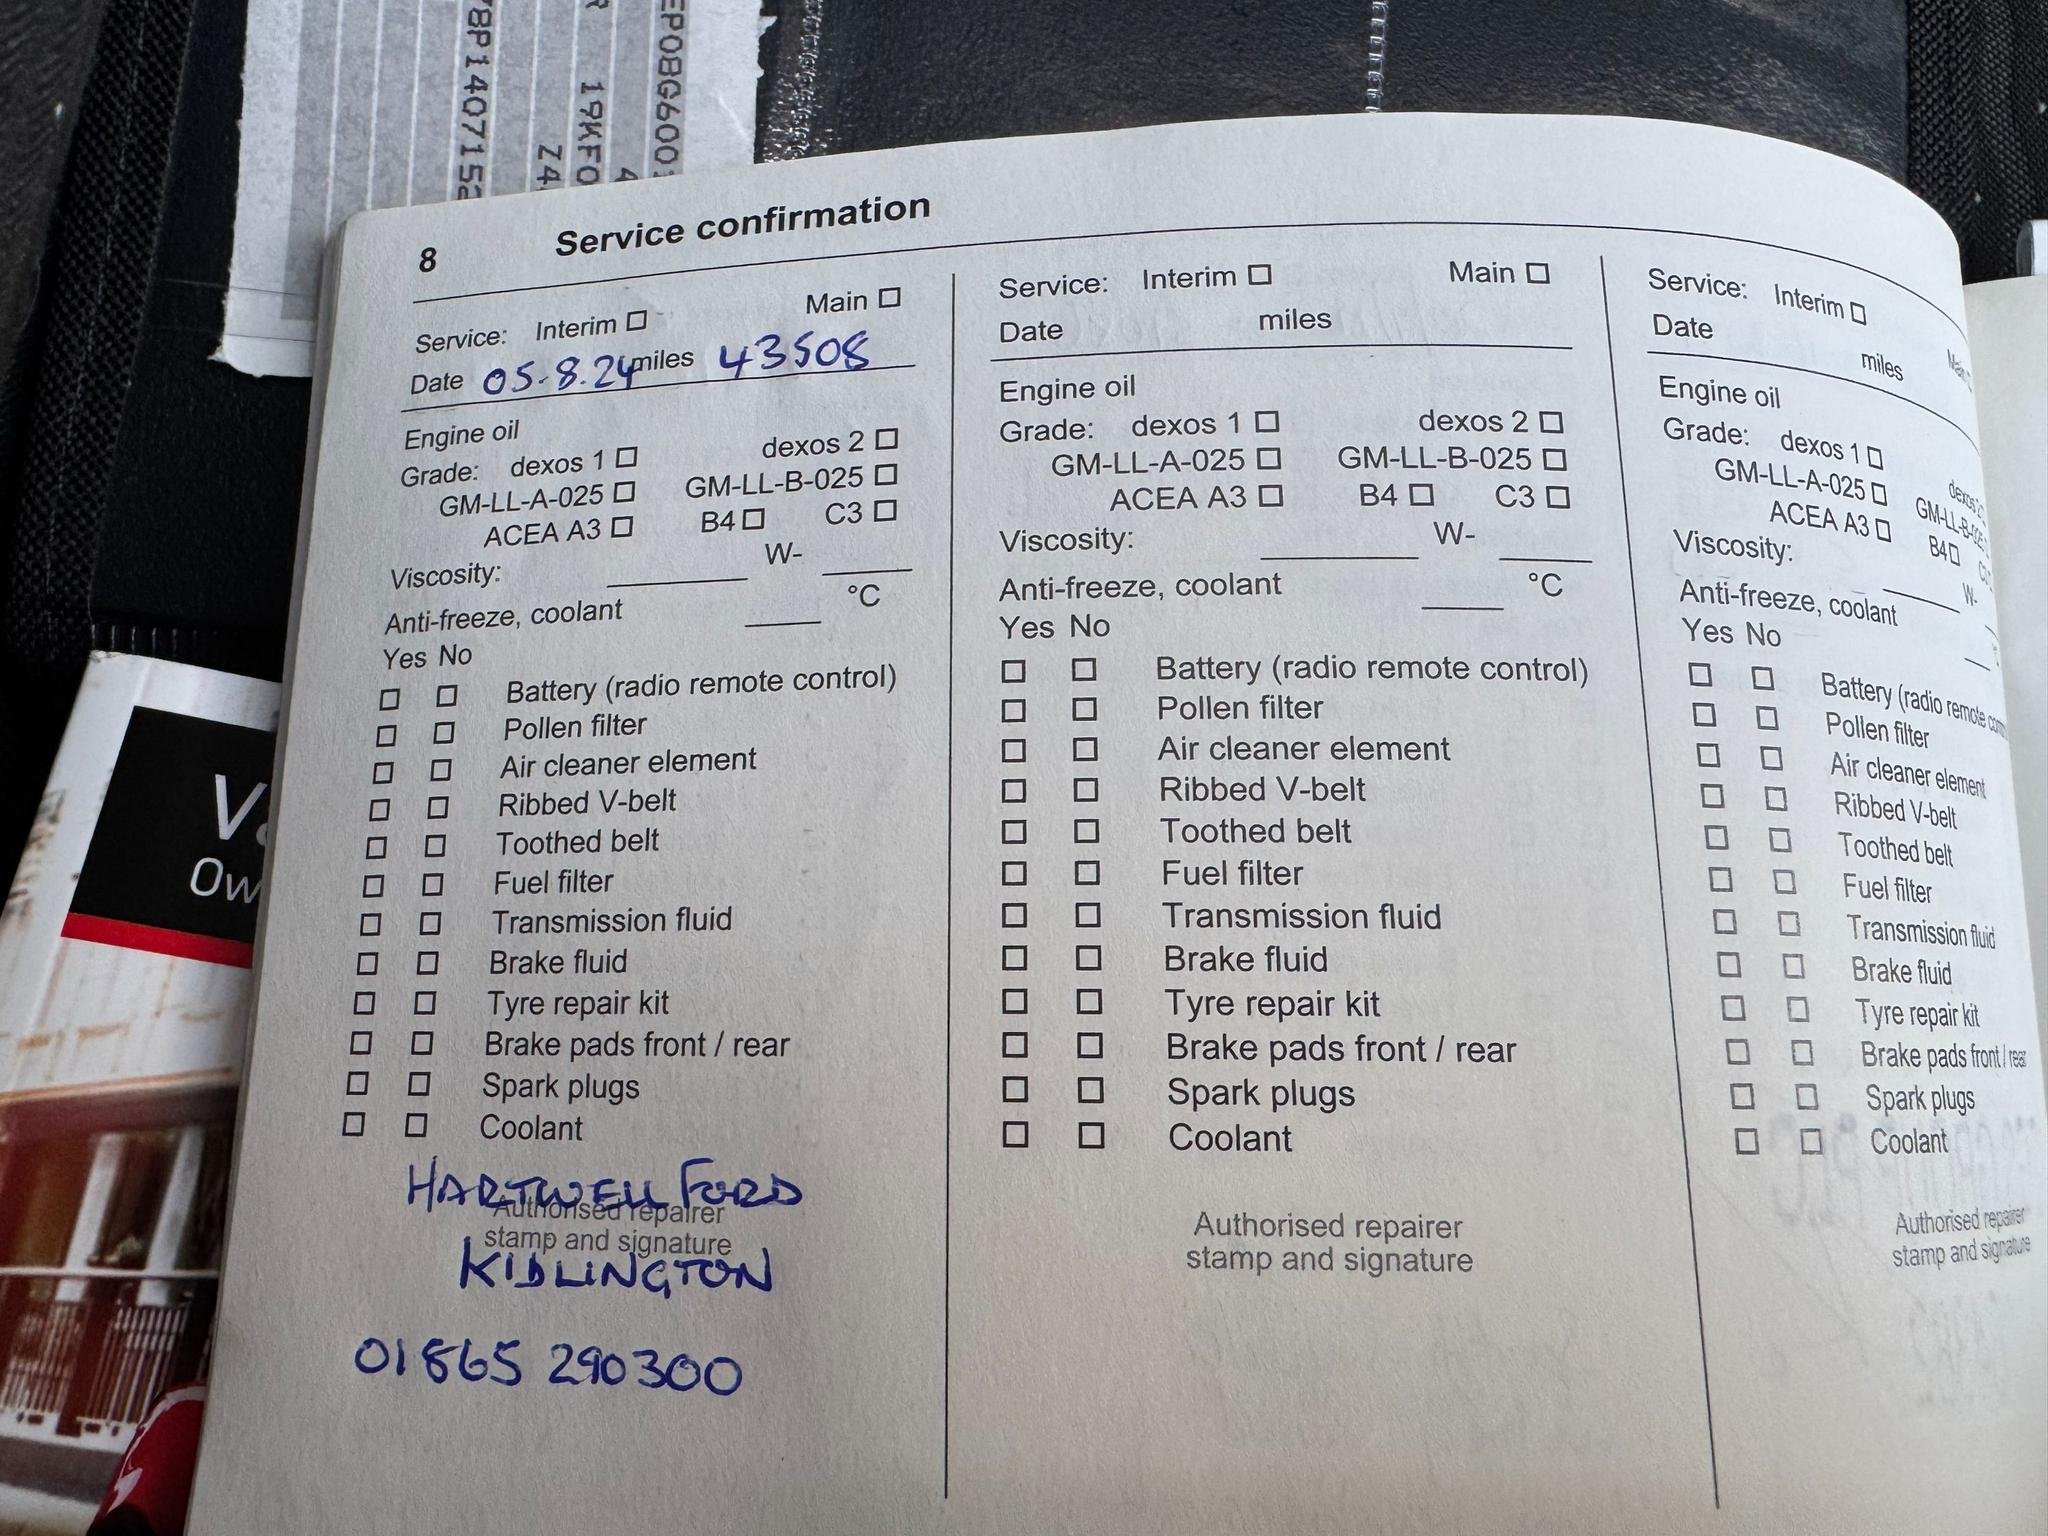 8P1407152
Z4
19KF0
4
EP0BG600
8 Service confirmation
Service: Interim ☐ Main ☐
Date 05.8.24 miles 43508
Engine oil
Grade: dexos 1 ☐ dexos 2 ☐
GM-LL-A-025 ☐ GM-LL-B-025 ☐
ACEA A3 ☐ B4 ☐ C3 ☐
Viscosity: ____ W- ____
Anti-freeze, coolant ____ °C
Yes No
☐ ☐ Battery (radio remote control)
☐ ☐ Pollen filter
☐ ☐ Air cleaner element
☐ ☐ Ribbed V-belt
☐ ☐ Toothed belt
☐ ☐ Fuel filter
☐ ☐ Transmission fluid
☐ ☐ Brake fluid
☐ ☐ Tyre repair kit
☐ ☐ Brake pads front / rear
☐ ☐ Spark plugs
☐ ☐ Coolant
HARTWELL FORD
Authorised repairer
stamp and signature
KIDLINGTON
01865 290300
Service: Interim ☐ Main ☐
Date miles
Engine oil
Grade: dexos 1 ☐ dexos 2 ☐
GM-LL-A-025 ☐ GM-LL-B-025 ☐
ACEA A3 ☐ B4 ☐ C3 ☐
Viscosity: ____ W- ____
Anti-freeze, coolant ____ °C
Yes No
☐ ☐ Battery (radio remote control)
☐ ☐ Pollen filter
☐ ☐ Air cleaner element
☐ ☐ Ribbed V-belt
☐ ☐ Toothed belt
☐ ☐ Fuel filter
☐ ☐ Transmission fluid
☐ ☐ Brake fluid
☐ ☐ Tyre repair kit
☐ ☐ Brake pads front / rear
☐ ☐ Spark plugs
☐ ☐ Coolant
Authorised repairer
stamp and signature
Service: Interim ☐ Main
Date miles
Engine oil
Grade: dexos 1 ☐ dexos 2
GM-LL-A-025 ☐ GM-LL-B-025
ACEA A3 ☐ B4 ☐
Viscosity: ____ W-
Anti-freeze, coolant ____
Yes No
☐ ☐ Battery (radio remote
☐ ☐ Pollen filter
☐ ☐ Air cleaner element
☐ ☐ Ribbed V-belt
☐ ☐ Toothed belt
☐ ☐ Fuel filter
☐ ☐ Transmission fluid
☐ ☐ Brake fluid
☐ ☐ Tyre repair kit
☐ ☐ Brake pads front / rear
☐ ☐ Spark plugs
☐ ☐ Coolant
Authorised repairer
stamp and signature